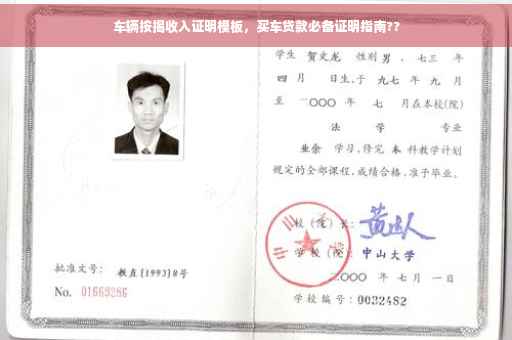 车辆按揭收入证明模板，买车贷款必备证明指南??
学生 贺文龙 性别 男 ，七三 年
四 月 日生，于 九七 年 九 月
至 二〇〇〇 年 七 月在本校(院)
法 学 专业
业余 学习，修完 本 科教学计划
规定的全部课程，成绩合格，准予毕业。
校（院）长：
学 校（院）：中山大学
二〇〇〇 年 七 月 一 日
学校编号：0032482
批准文号： 教直[1993]8号
No. 01663286